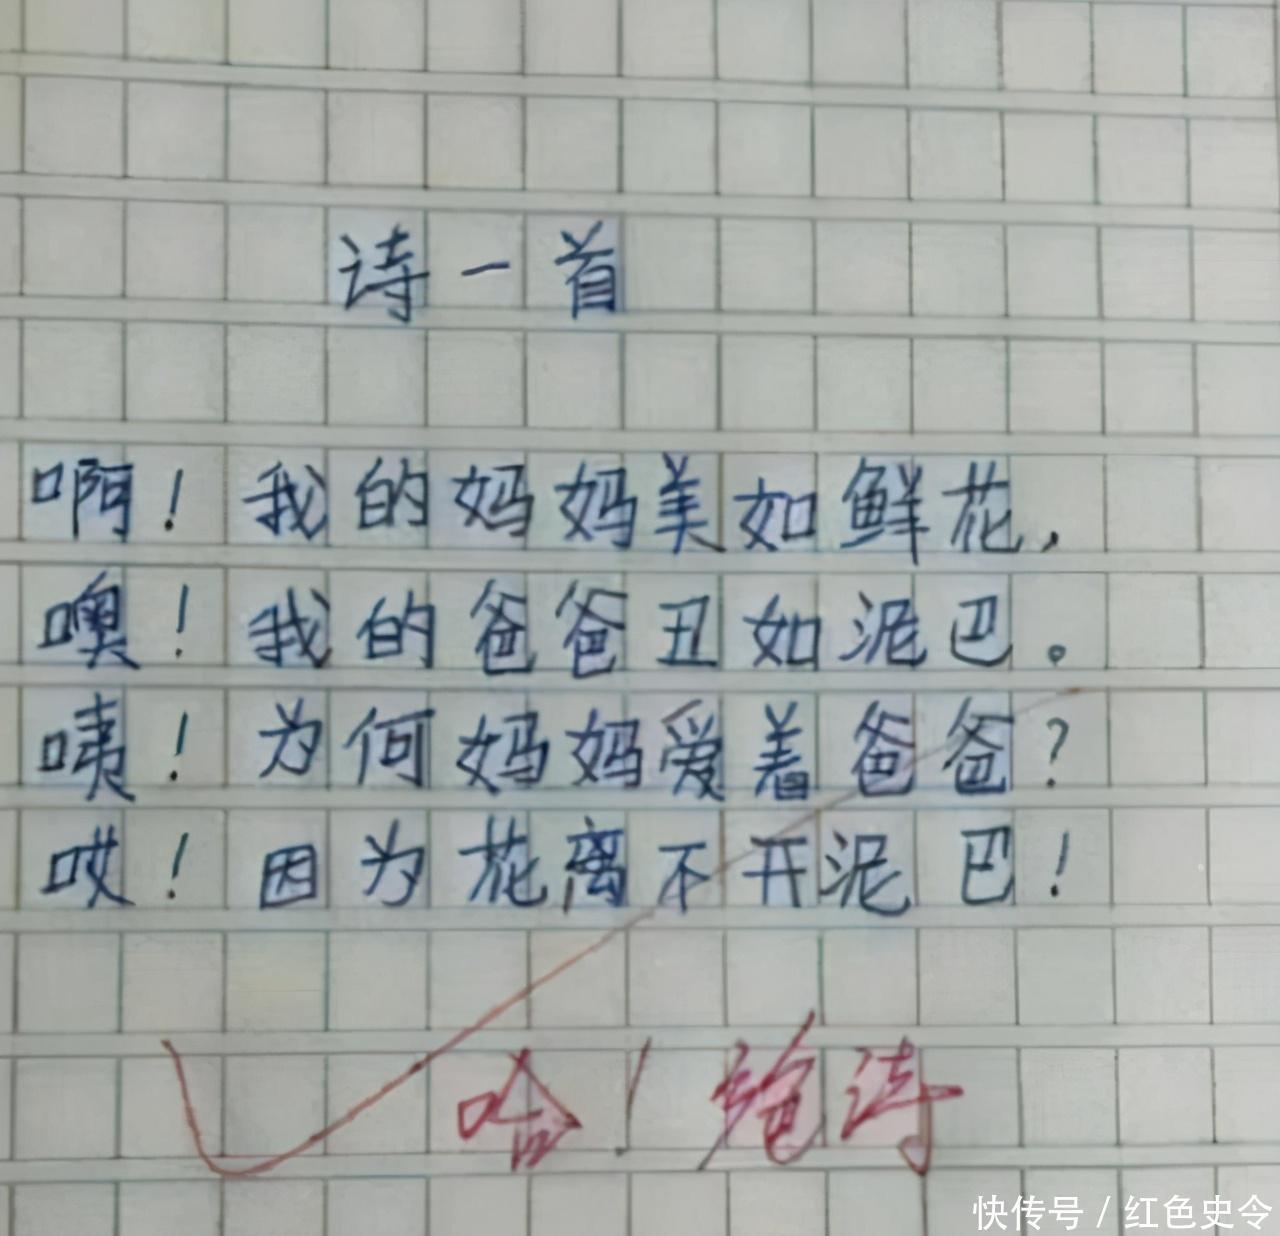 诗一首
啊！我的妈妈美如鲜花，
噢！我的爸爸丑如泥巴。
咦！为何妈妈爱着爸爸？
哎！因为花离不开泥巴！
哈！绝诗
快传号/红色史令